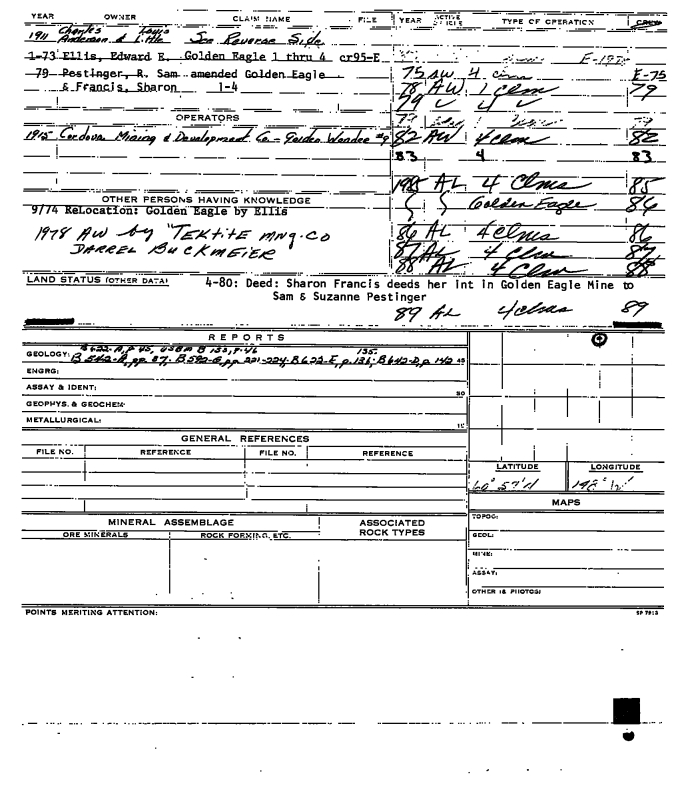 YEAR OWNER CLAIM NAME FILE YEAR ACTIVE TYPE OF OPERATION
1911 Charles Anderson & Louis Little See Reverse Side
1-73 Ellis, Edward E. Golden Eagle 1 thru 4 cr95-E
79 Pestinger, R. Sam amended Golden Eagle
& Francis, Sharon 1-4
75 AW 4 E-75
78 AW 1 clm 79
79 4
OPERATORS
1915 Cordova Mining & Development Co - Golden Wonder
82 AW 4 clms 82
83 4 83
1985 AL 4 Clms 85
OTHER PERSONS HAVING KNOWLEDGE
9/74 ReLocation: Golden Eagle by Ellis
Golden Eagle 86
1978 AW by "TEKTITE MNG. CO
DARREL BUCKMEIER
86 AL 4 clms 86
87 AL 4 Clms 87
88 AL 4 Clms 88
LAND STATUS (OTHER DATA) 4-80: Deed: Sharon Francis deeds her int in Golden Eagle Mine to
Sam & Suzanne Pestinger
89 AL 4 clms 89
REPORTS
B622-A, p 45, USBM B 153, p. 46
135.
GEOLOGY: B 542-A, pp 37. B 592-G, pp 221-224; B622-E, p. 136; B642-D, p 142 45
ENGRG:
ASSAY & IDENT: 30
GEOPHYS. & GEOCHEM:
METALLURGICAL: 15
GENERAL REFERENCES
FILE NO. REFERENCE FILE NO. REFERENCE
LATITUDE LONGITUDE
MAPS
MINERAL ASSEMBLAGE ASSOCIATED ROCK TYPES
ORE MINERALS ROCK FORMING, ETC.
TOPOG:
GEOL:
MINE:
ASSAY:
OTHER (& PHOTOS)
POINTS MERITING ATTENTION: SP 7913